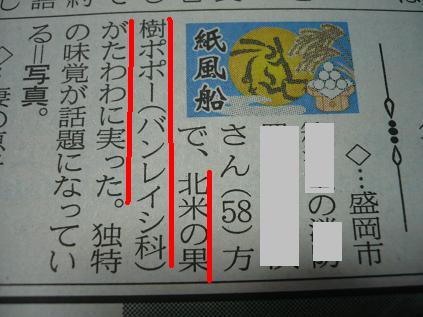 紙風船
◇…盛岡市
の消防
さん(58)方
で、北米の果
樹ポポー(バンレイシ科)
がたわわに実った。独特
の味覚が話題になってい
る＝写真。